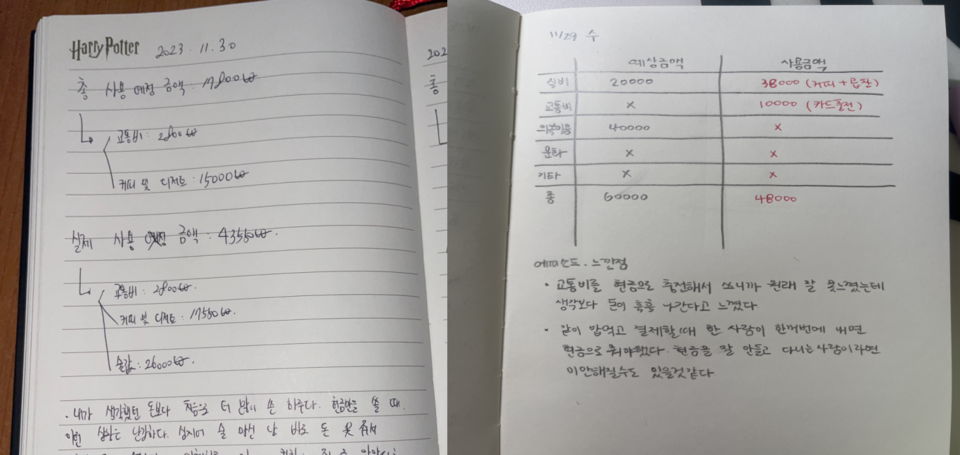 Harry Potter 2023. 11. 30
총 사용 예정 금액 : 17800₩
교통비 : 2800₩
커피 및 디저트 : 15000₩
실제 사용 금액 : 43550₩.
교통비 : 2800₩.
커피 및 디저트 : 17550₩.
술값 : 26000₩.
· 내가 생각했던 돈보다 더 많이 쓴 하루다. 현금만을 쓸 때
이런 상황은 난감하다. 심지어 술 마신 날 바로 돈 못
202
총
11/29 수
예상금액 사용금액
식비 20000 38000 (커피 +
교통비 x 10000 (카드충전)
40000 x
문화 x x
기타 x x
총 60000 48000
에피소드. 느낀점
· 교통비를 현금으로 충전해서 쓰니까 원래 잘 못느꼈는데
생각보다 돈이 훅훅 나간다고 느꼈다
· 같이 밥먹고 결제할때 한 사람이 한꺼번에 내면
현금으로 줘야했다. 현금을 잘 안들고 다니는 사람이라면
미안해질수도 있을것같다